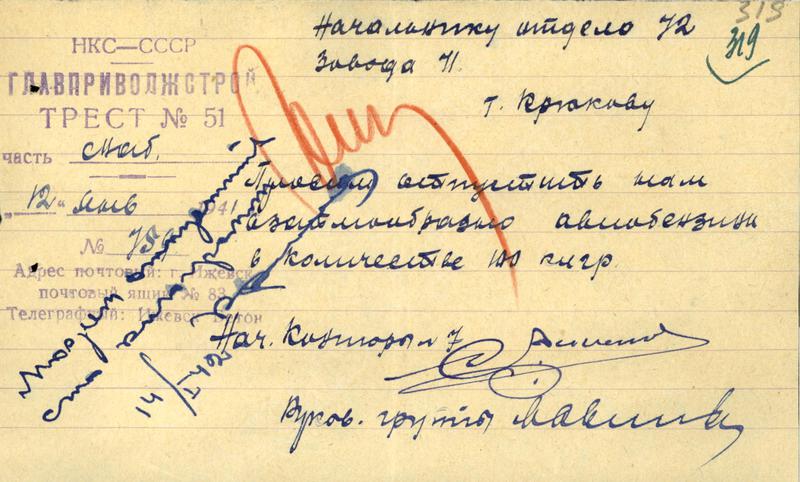 319
319
НКС—СССР
ГЛАВПРИВОЛЖСТРОЙ
ТРЕСТ № 51
часть снаб.
„12" янв 1941
№ 75
Адрес почтовый: г. Ижевск
почтовый ящик № 83
Телеграфный: Ижевск Бетон
Начальнику отдела 72
Завода 71.
т. Крюкову
Просим отпустить нам
взаимообразно авиобензина
в количестве 100 клгр.
Нач. Конторы № 7
Руков. группы
14/I 42г